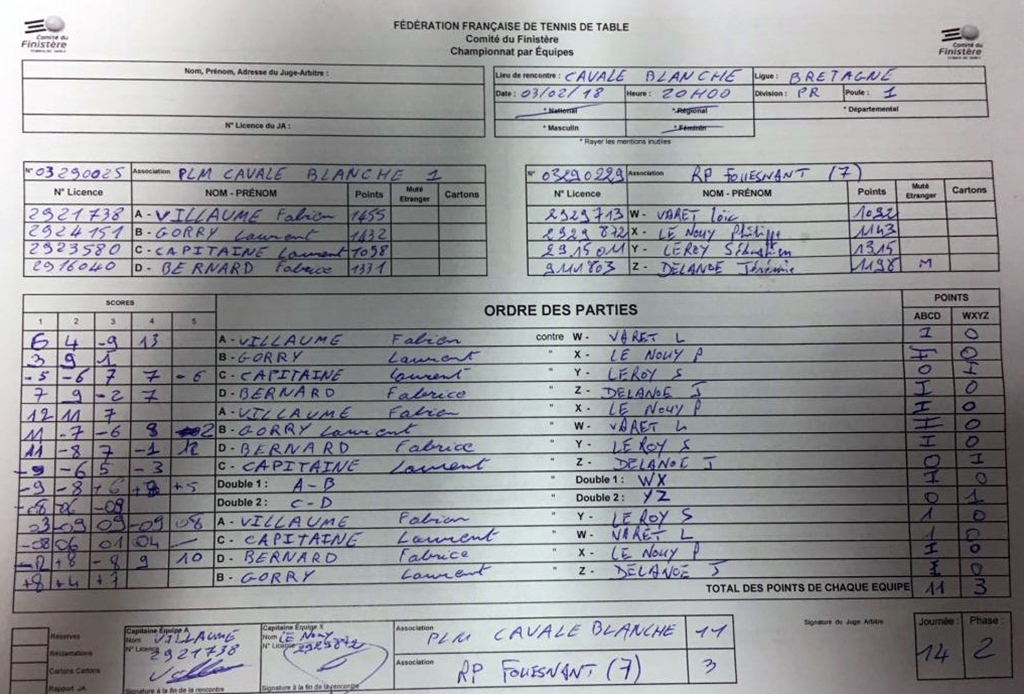 Comité du
Finistère
FÉDÉRATION FRANÇAISE DE TENNIS DE TABLE
Comité du Finistère
Championnat par Équipes
Comité du
Finistère
Nom, Prénom, Adresse du Juge-Arbitre :
N° Licence du JA :
Lieu de rencontre : CAVALE BLANCHE Ligue : BRETAGNE
Date : 03/02/18 Heure : 20H00 Division : PR Poule : 1
* National * Régional * Départemental
* Masculin * Féminin
* Rayer les mentions inutiles
N° 03290025 Association PLM CAVALE BLANCHE 1
N° Licence NOM - PRÉNOM Points Muté Etranger Cartons
2921738 A - VILLAUME Fabien 1455
2924151 B - GORRY Laurent 1432
2923580 C - CAPITAINE Laurent 1098
2916040 D - BERNARD Fabrice 1331
N° 03290229 Association RP FOUESNANT (7)
N° Licence NOM - PRÉNOM Points Muté Etranger Cartons
2929713 W - VARET Loïc 1092
2929872 X - LE NOUY Philippe 1143
2915011 Y - LEROY Sébastien 1315
9111803 Z - DELANOE Jérémie 1198 M
SCORES ORDRE DES PARTIES POINTS
1 2 3 4 5 ABCD WXYZ
6 4 -9 13 A - VILLAUME Fabien contre W - VARET L 1 0
3 9 1 B - GORRY Laurent " X - LE NOUY P 1 0
-5 -6 7 7 -6 C - CAPITAINE Laurent " Y - LEROY S 0 1
7 9 -2 7 D - BERNARD Fabrice " Z - DELANOE J 1 0
12 11 7 A - VILLAUME Fabien " X - LE NOUY P 1 0
11 -7 -6 B - GORRY Laurent " W - VARET L 1 0
11 -8 7 -1 12 D - BERNARD Fabrice " Y - LEROY S 1 0
-9 -6 5 -3 C - CAPITAINE Laurent " Z - DELANOE J 0 1
-9 -8 +6 +5 Double 1 : A-B " Double 1 : WX 1 0
-08 06 -09 Double 2 : C-D " Double 2 : YZ 0 1
03 -09 09 -09 08 A - VILLAUME Fabien " Y - LEROY S 1 0
-08 06 01 04 — C - CAPITAINE Laurent " W - VARET L 1 0
+8 -8 9 10 D - BERNARD Fabrice " X - LE NOUY P 1 0
+8 +4 +7 B - GORRY Laurent " Z - DELANOE J 1 0
TOTAL DES POINTS DE CHAQUE EQUIPE 11 3
Réserves
Réclamations
Cartons Cartons
Rapport JA
Capitaine Équipe A
Nom VILLAUME
N° Licence 2921738
Signature à la fin de la rencontre
Capitaine Équipe X
Nom LE NOUY
N° Licence 2929872
Signature à la fin de la rencontre
Association PLM CAVALE BLANCHE 11
Association RP FOUESNANT (7) 3
Signature du Juge Arbitre
Journée : 14
Phase : 2